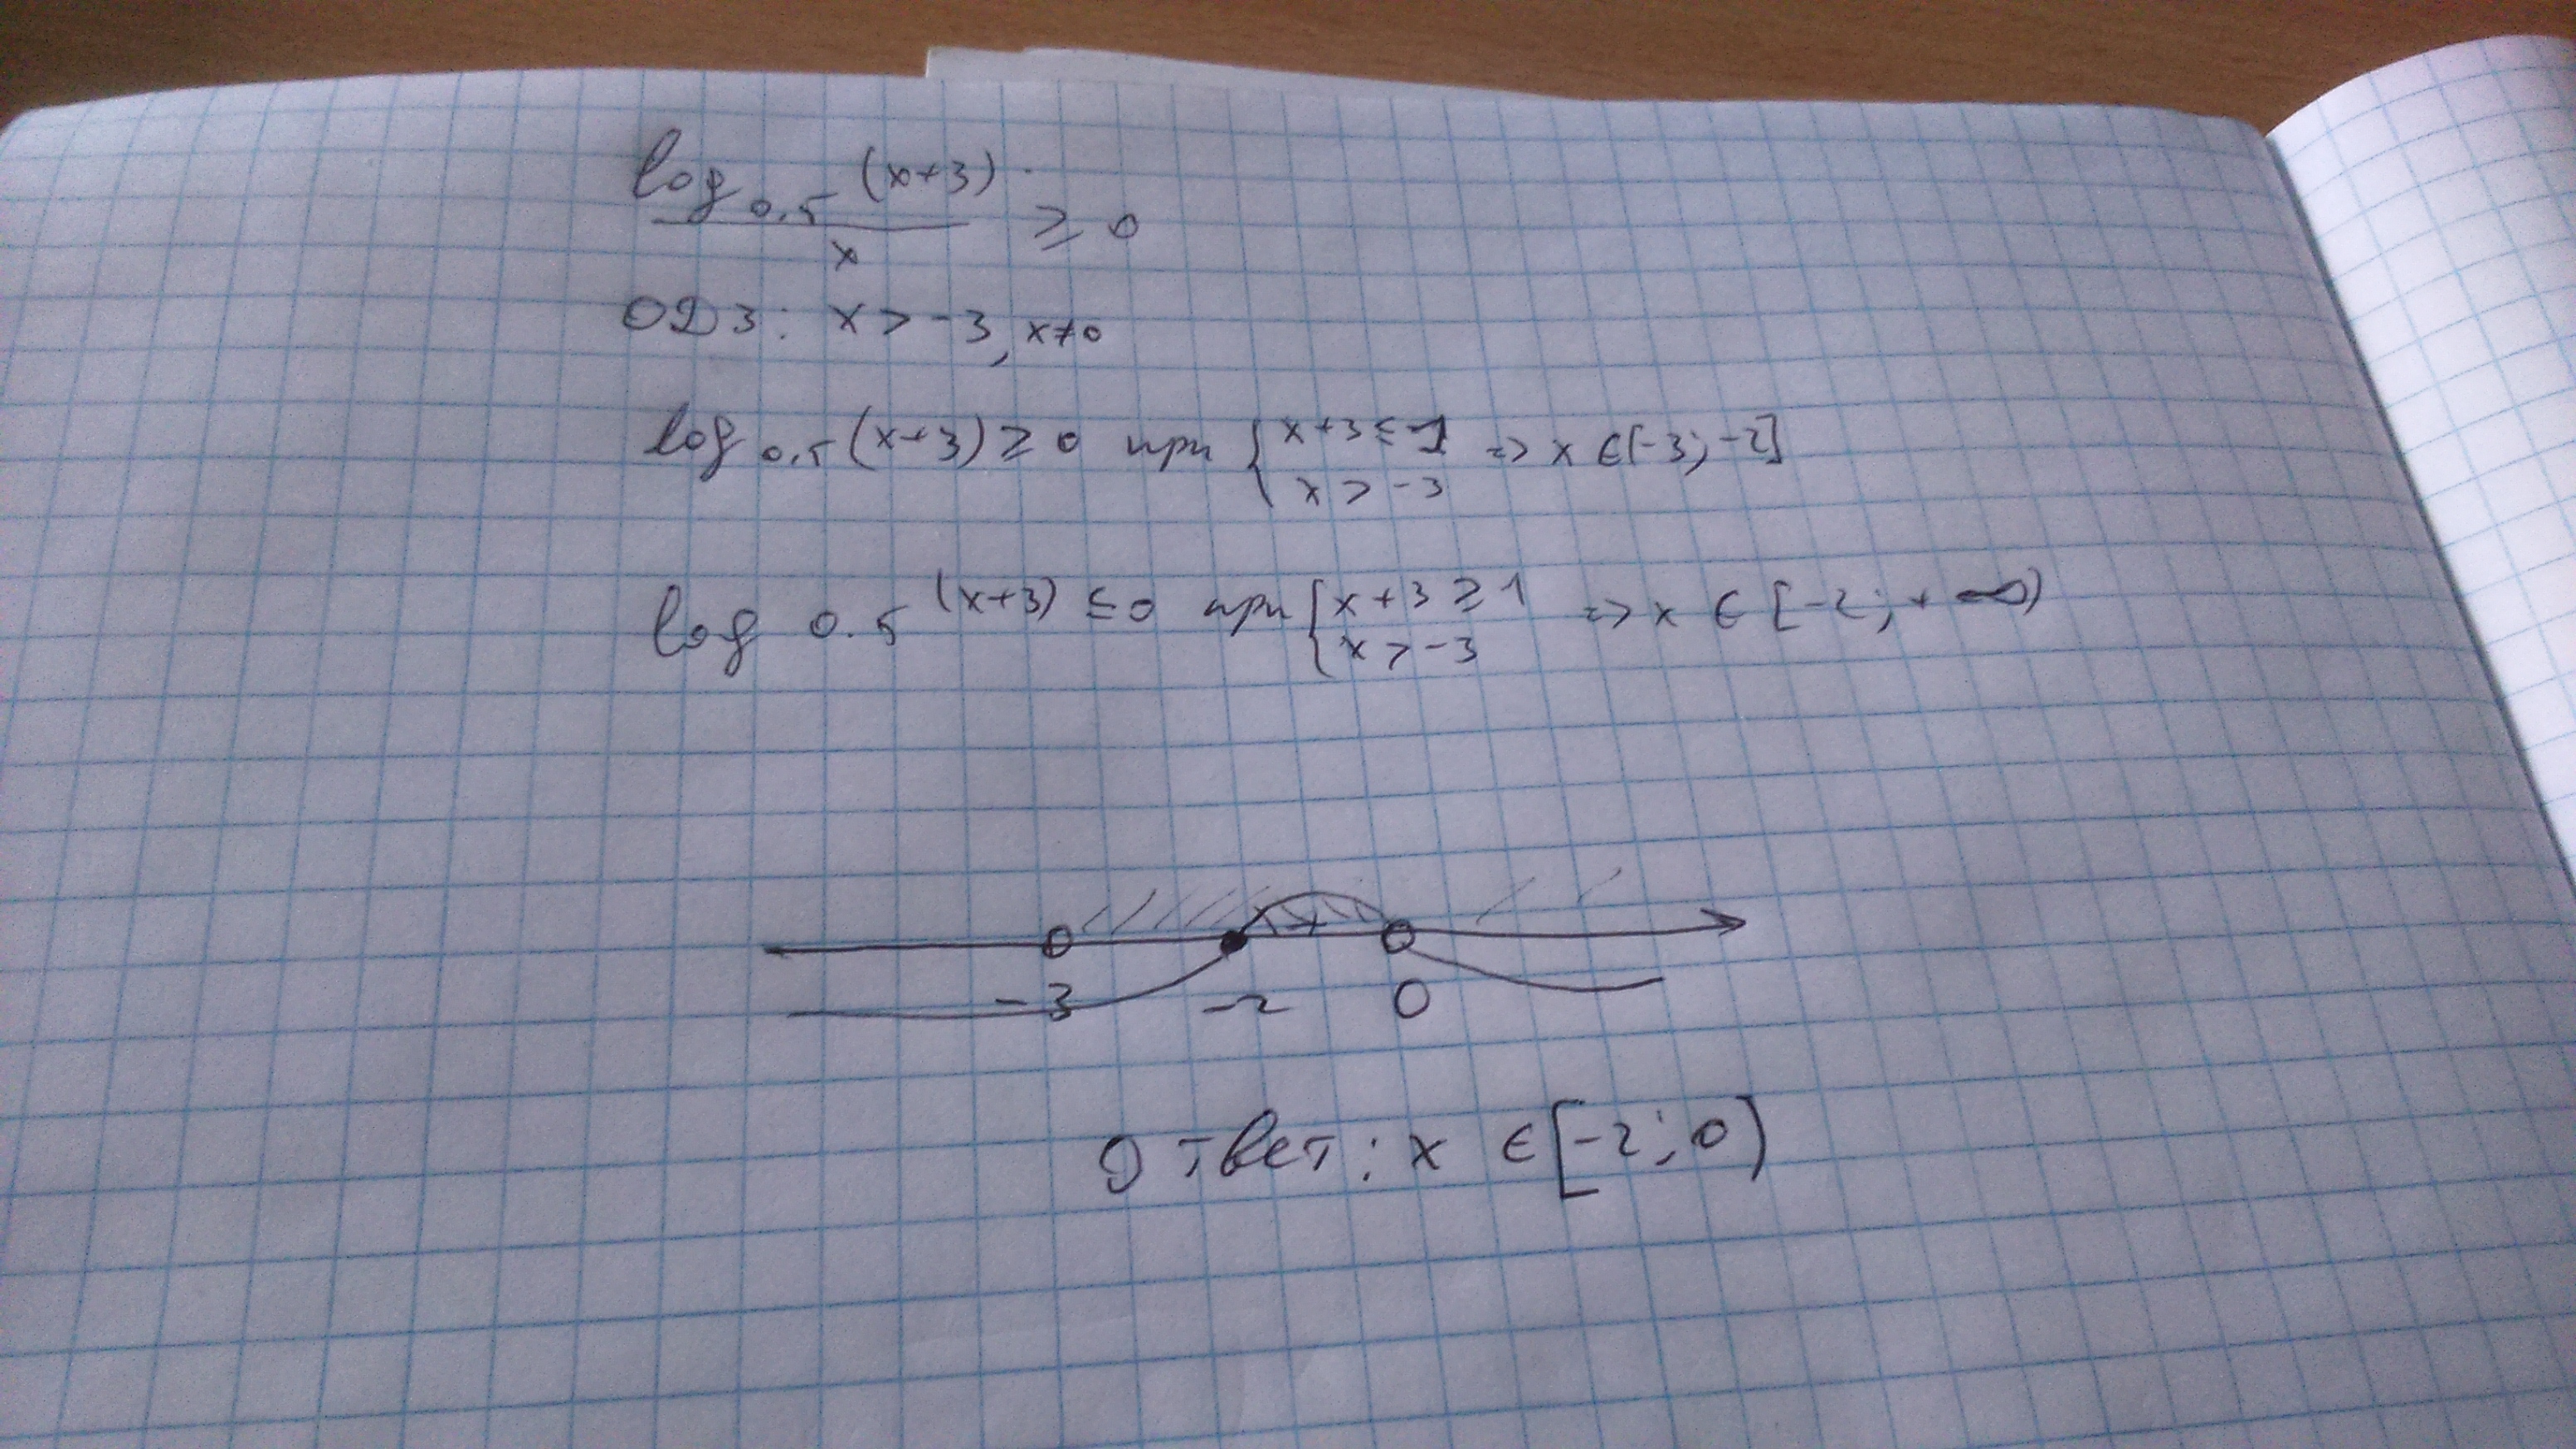 log 0.5 (x+3)
x
≥ 0
ОДЗ: x > -3, x≠0
log 0.5 (x+3) ≥ 0 при { x+3 ≤ 1 => x ∈ [-3; -2]
x > -3
log 0.5 (x+3) ≤ 0 при { x+3 ≥ 1 => x ∈ [-2; +∞)
x > -3
+
-3 -2 0
Ответ: x ∈ [-2; 0)